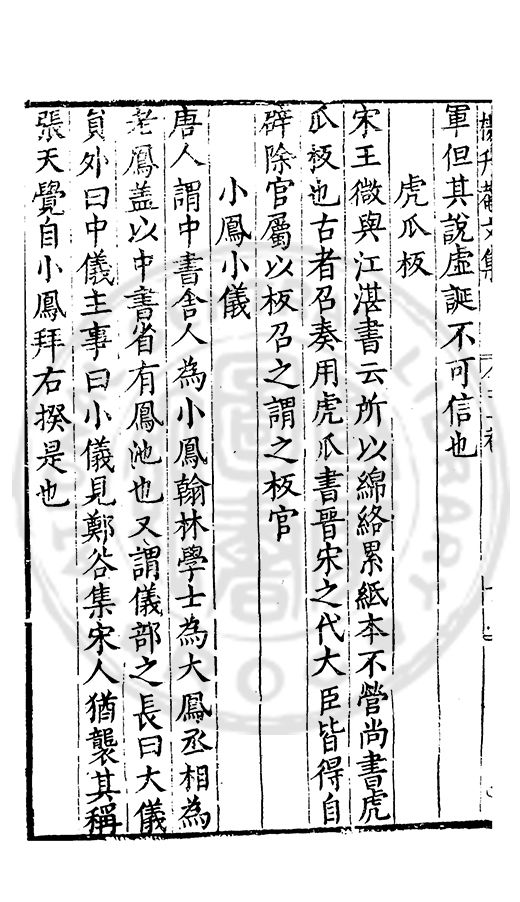 軍但其說虛誕不可信也
虎瓜板
宋王微與江湛書云所以綿絡累紙本不營尚書虎
瓜板也古者召奏用虎瓜書晉宋之代大臣皆得自
辟除官屬以板召之謂之板官
小鳳小儀
唐人謂中書舍人為小鳳翰林學士為大鳳丞相為
老鳳盖以中書省有鳳池也又謂儀部之長曰大儀
員外曰中儀主事曰小儀見鄭谷集宋人猶襲其稱
張天覺自小鳳拜右揆是也